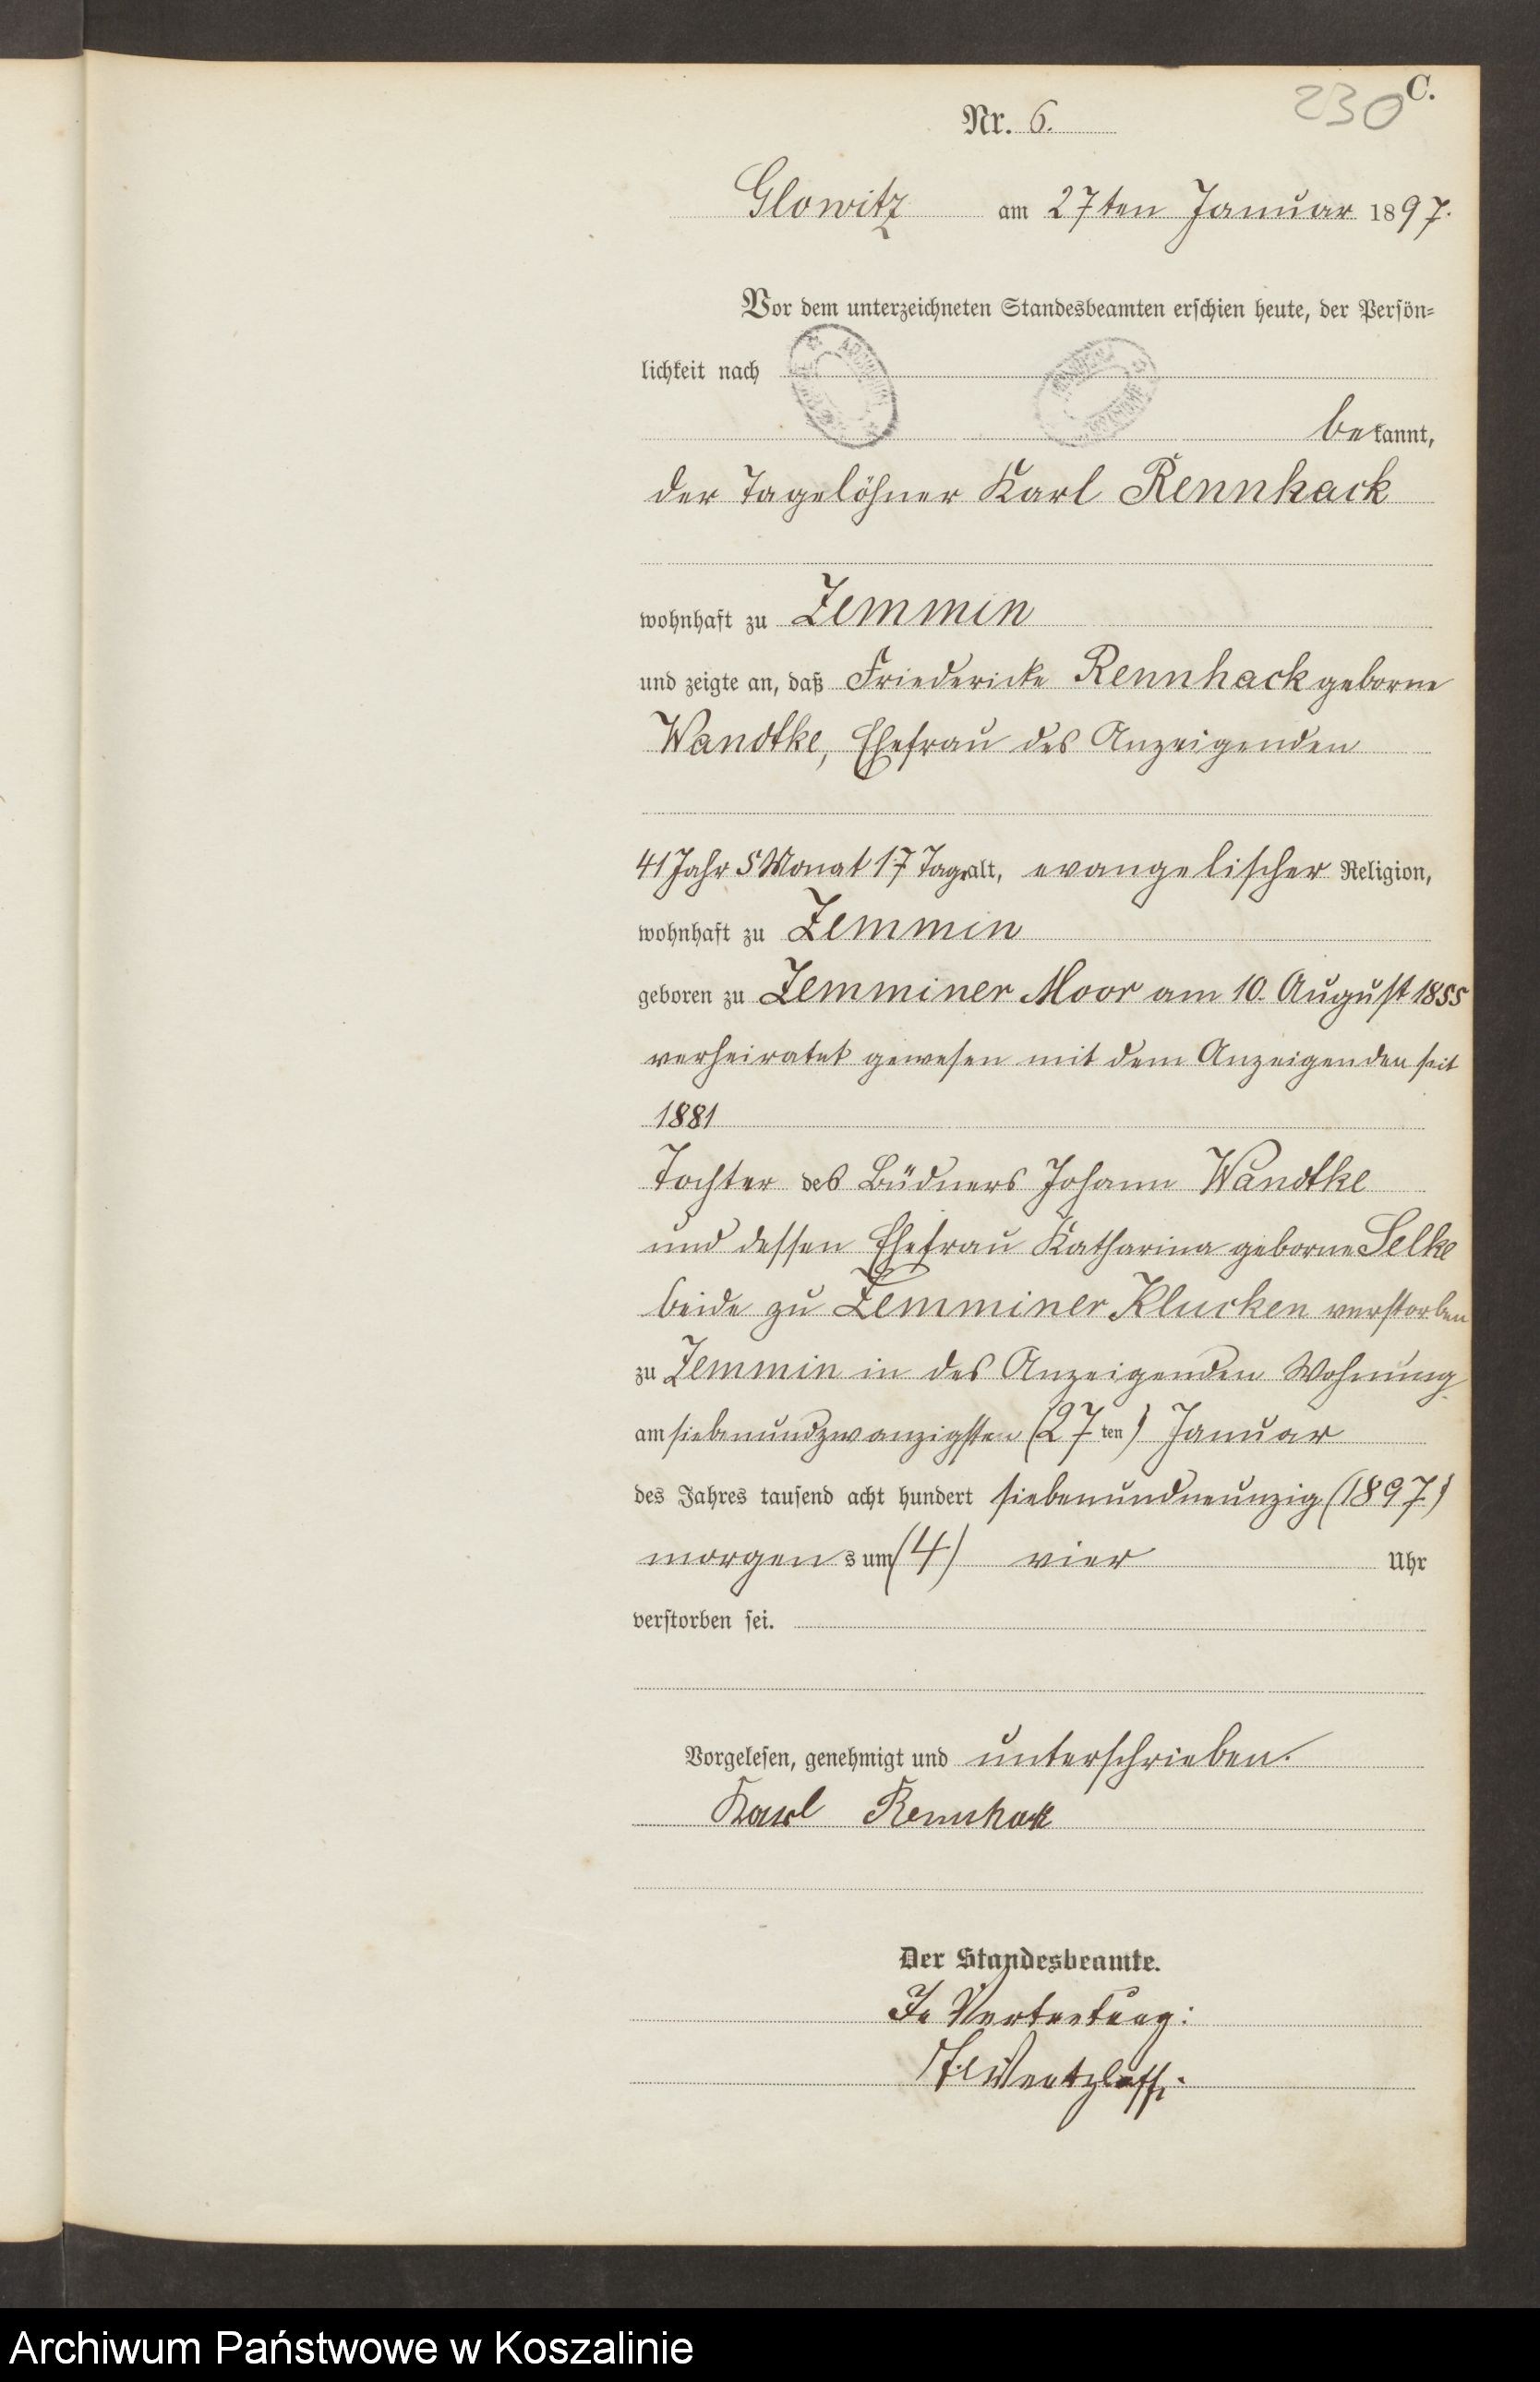 C.
230
Nr. 6.
Glowitz am 27ten Januar 1897.
Vor dem unterzeichneten Standesbeamten erschien heute, der Persön-
lichkeit nach
bekannt,
der Tagelöhner Karl Rennhack
wohnhaft zu Zemmin
und zeigte an, daß Friedericke Rennhack geborne
Wandtke, Ehefrau des Anzeigenden
41 Jahr 5 Monat 17 Tage alt, evangelischer Religion,
wohnhaft zu Zemmin
geboren zu Zemminer Moor am 10. August 1855
verheiratet gewesen mit dem Anzeigenden seit
1881
Tochter des Büdners Johann Wandtke
und dessen Ehefrau Katharina geborne Selke
beide zu Zemminer Klucken verstorben
zu Zemmin in des Anzeigenden Wohnung
am siebenundzwanzigsten (27ten) Januar
des Jahres tausend acht hundert siebenundneunzig (1897)
morgens um (4) vier Uhr
verstorben sei.
Vorgelesen, genehmigt und unterschrieben.
Karl Rennhak
Der Standesbeamte.
In Vertretung:
Archiwum Państwowe w Koszalinie